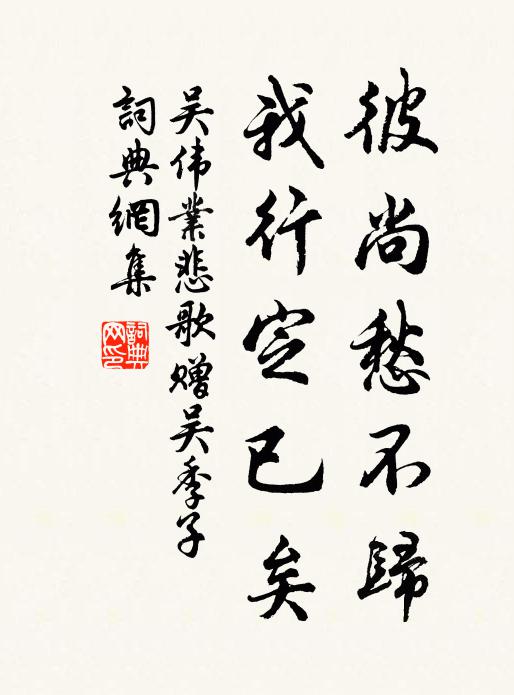 彼尚愁不歸
我行定已矣
吴伟業悲歌贈吴季子
詞典網集
詞典網印